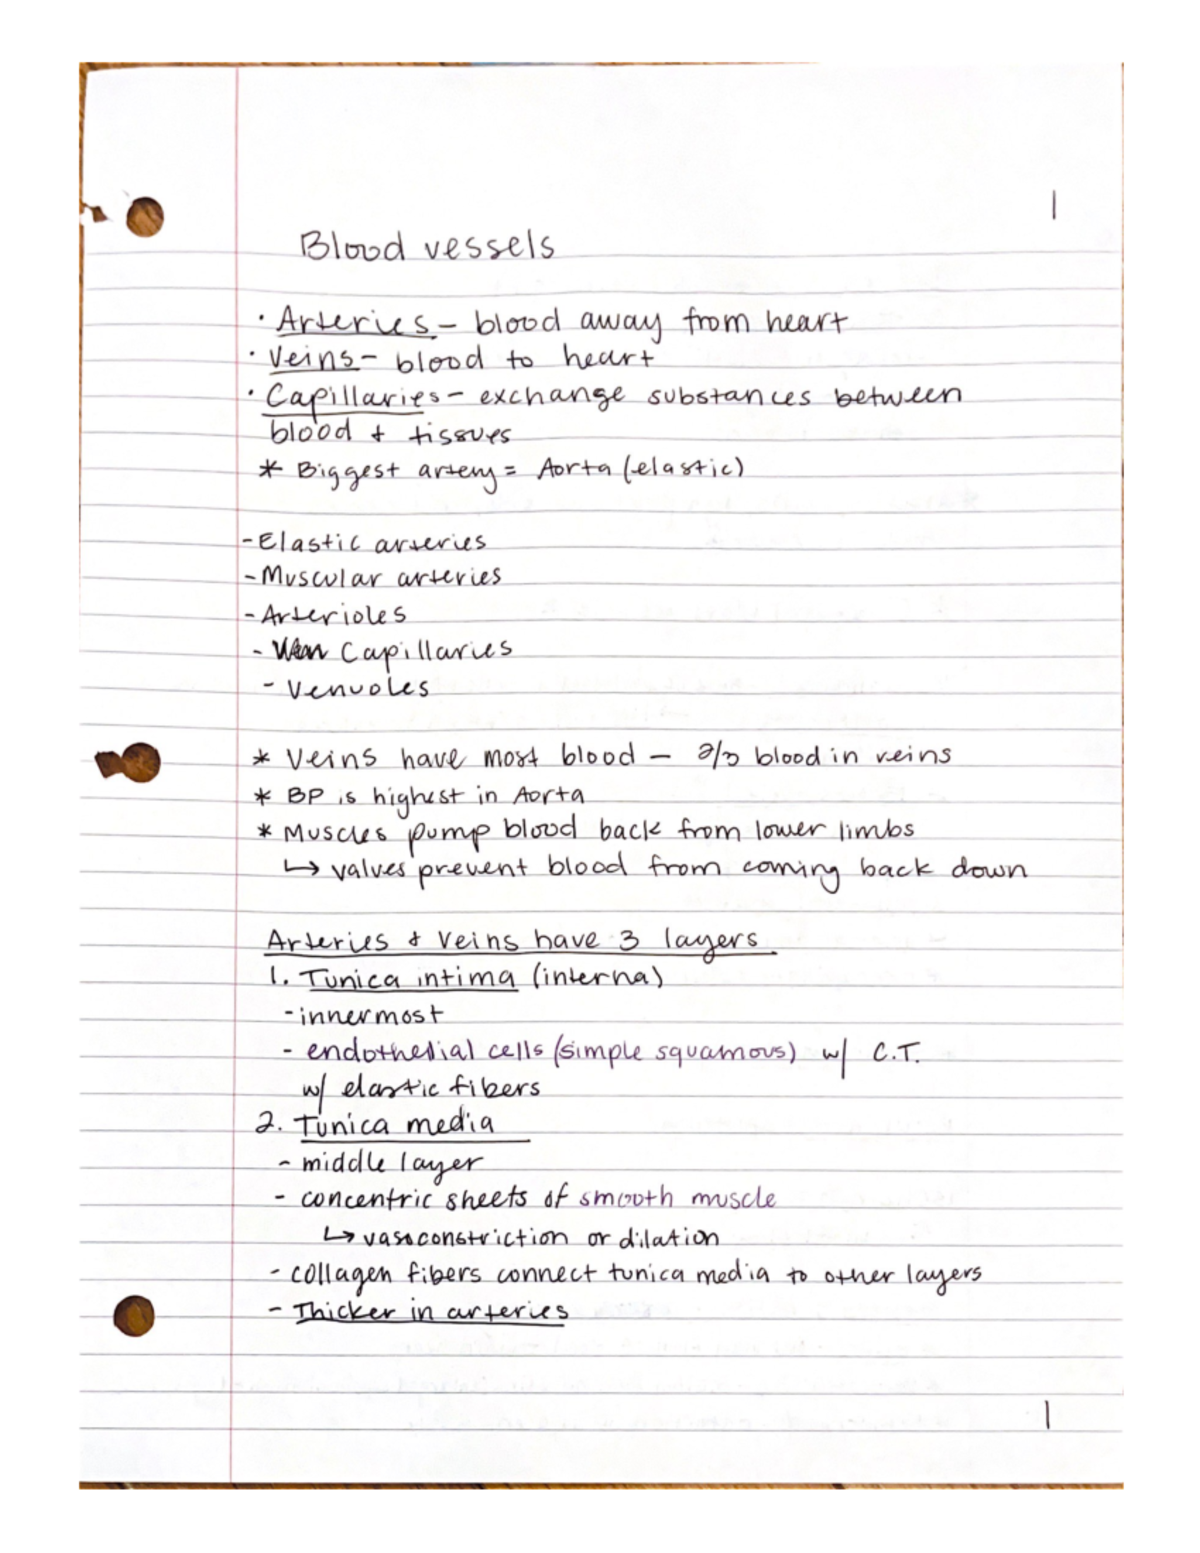 1
Blood vessels
· Arteries - blood away from heart
· Veins - blood to heart
· Capillaries - exchange substances between
blood + tissues
* Biggest artery = Aorta (elastic)
- Elastic arteries
- Muscular arteries
- Arterioles
- Capillaries
- Venuoles
* Veins have most blood — 2/3 blood in veins
* BP is highest in Aorta
* Muscles pump blood back from lower limbs
↳ valves prevent blood from coming back down
Arteries & Veins have 3 layers
1. Tunica intima (interna)
- innermost
- endothelial cells (simple squamous) w/ C.T.
w/ elastic fibers
2. Tunica media
- middle layer
- concentric sheets of smooth muscle
↳ vasoconstriction or dilation
- collagen fibers connect tunica media to other layers
- Thicker in arteries
1